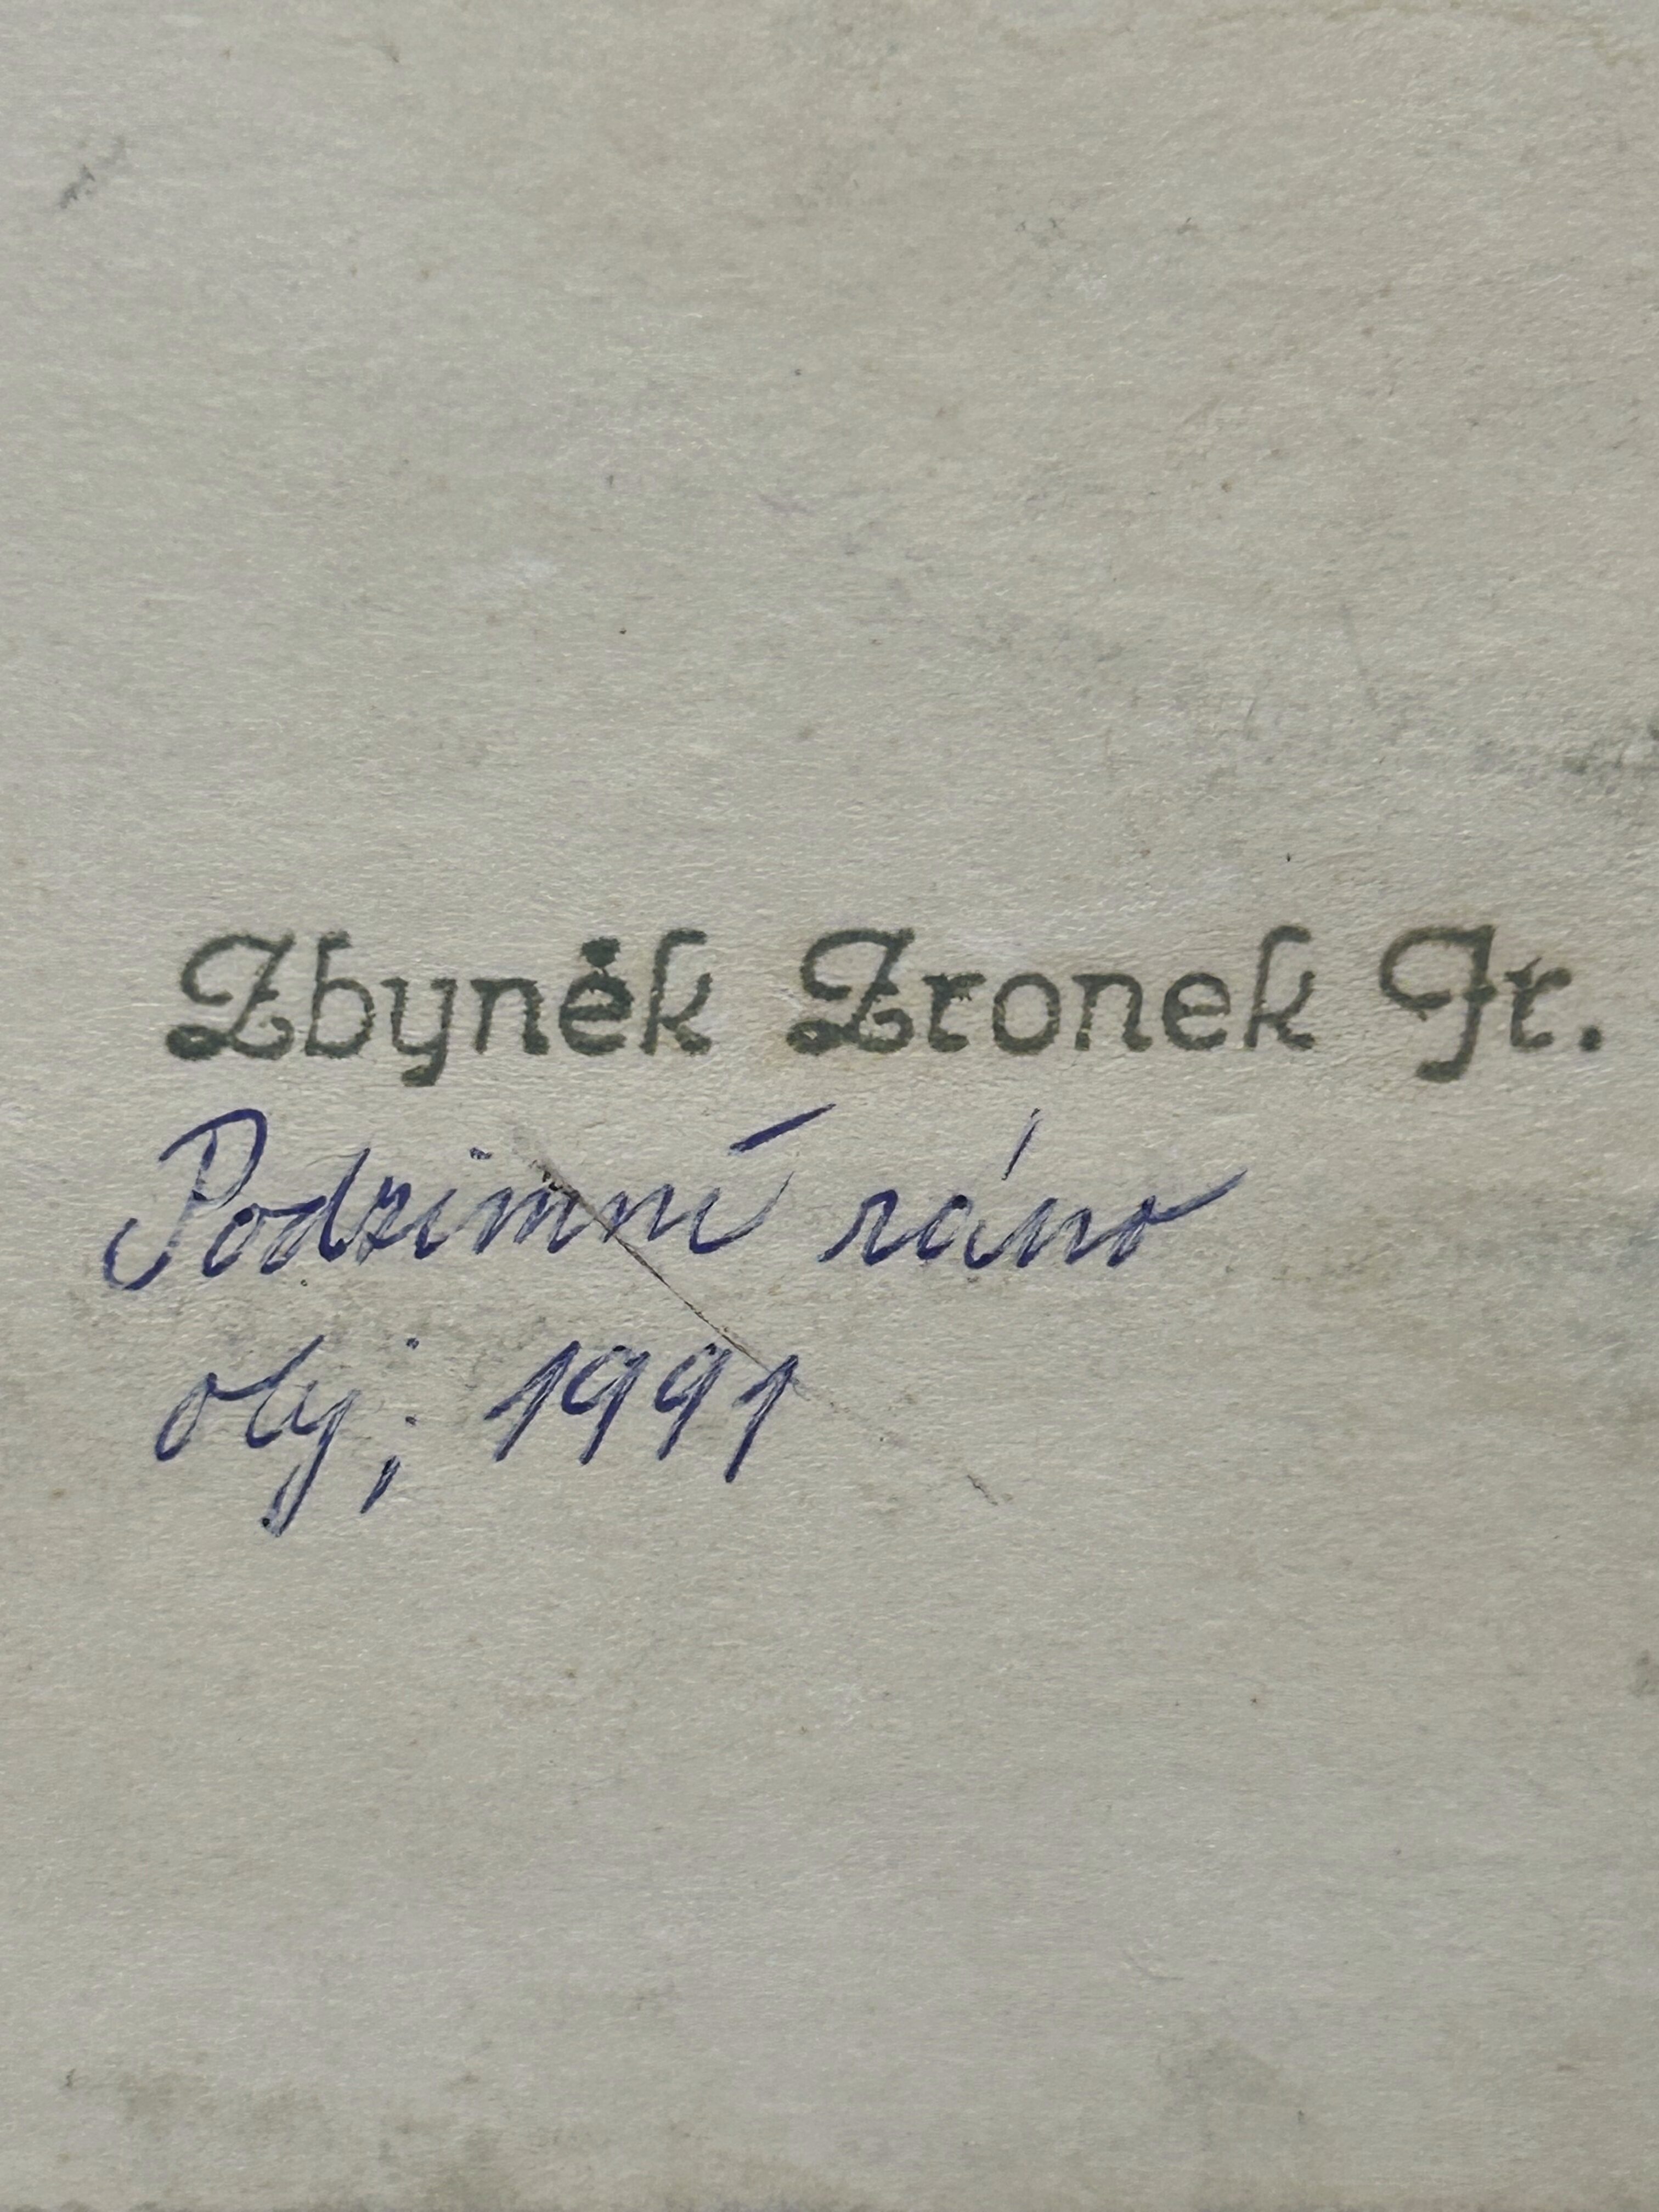 Zbyněk Zronek Jr.
Podzimní ráno
olej; 1991